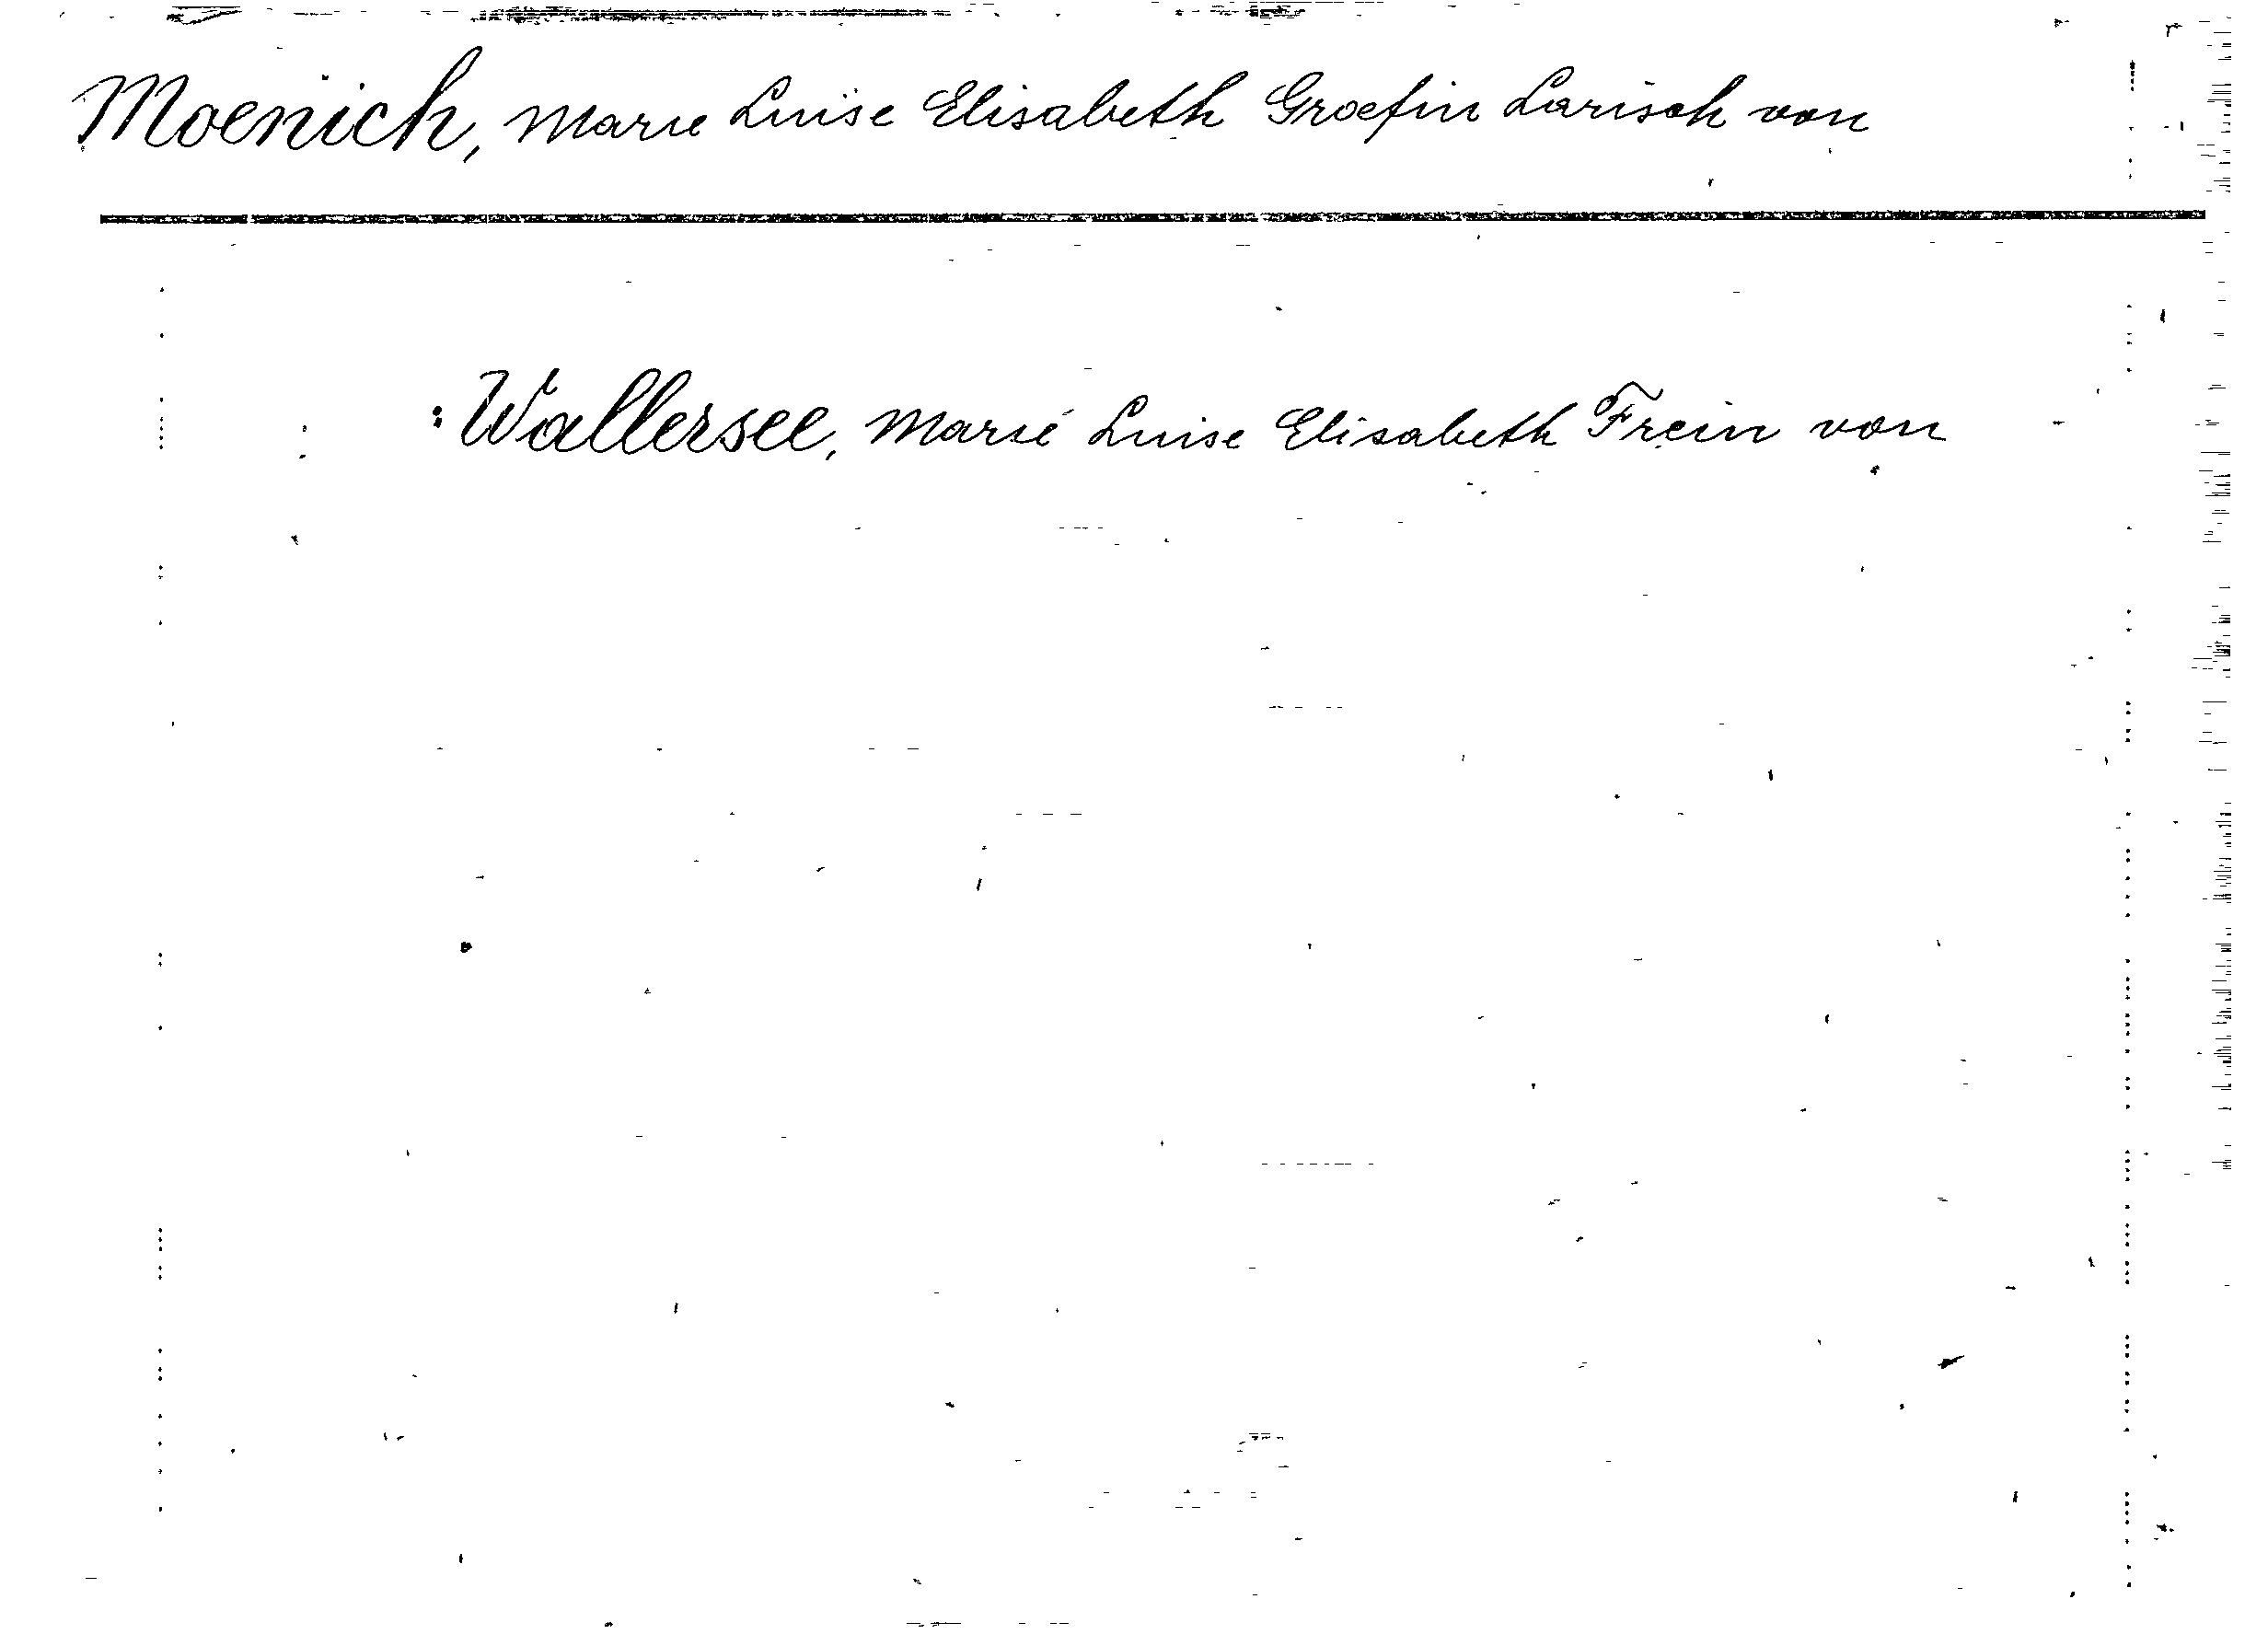 Moenich, Marie Luise Elisabeth Groefin Larisch von
: Wallersee, Marie Luise Elisabeth Frein von